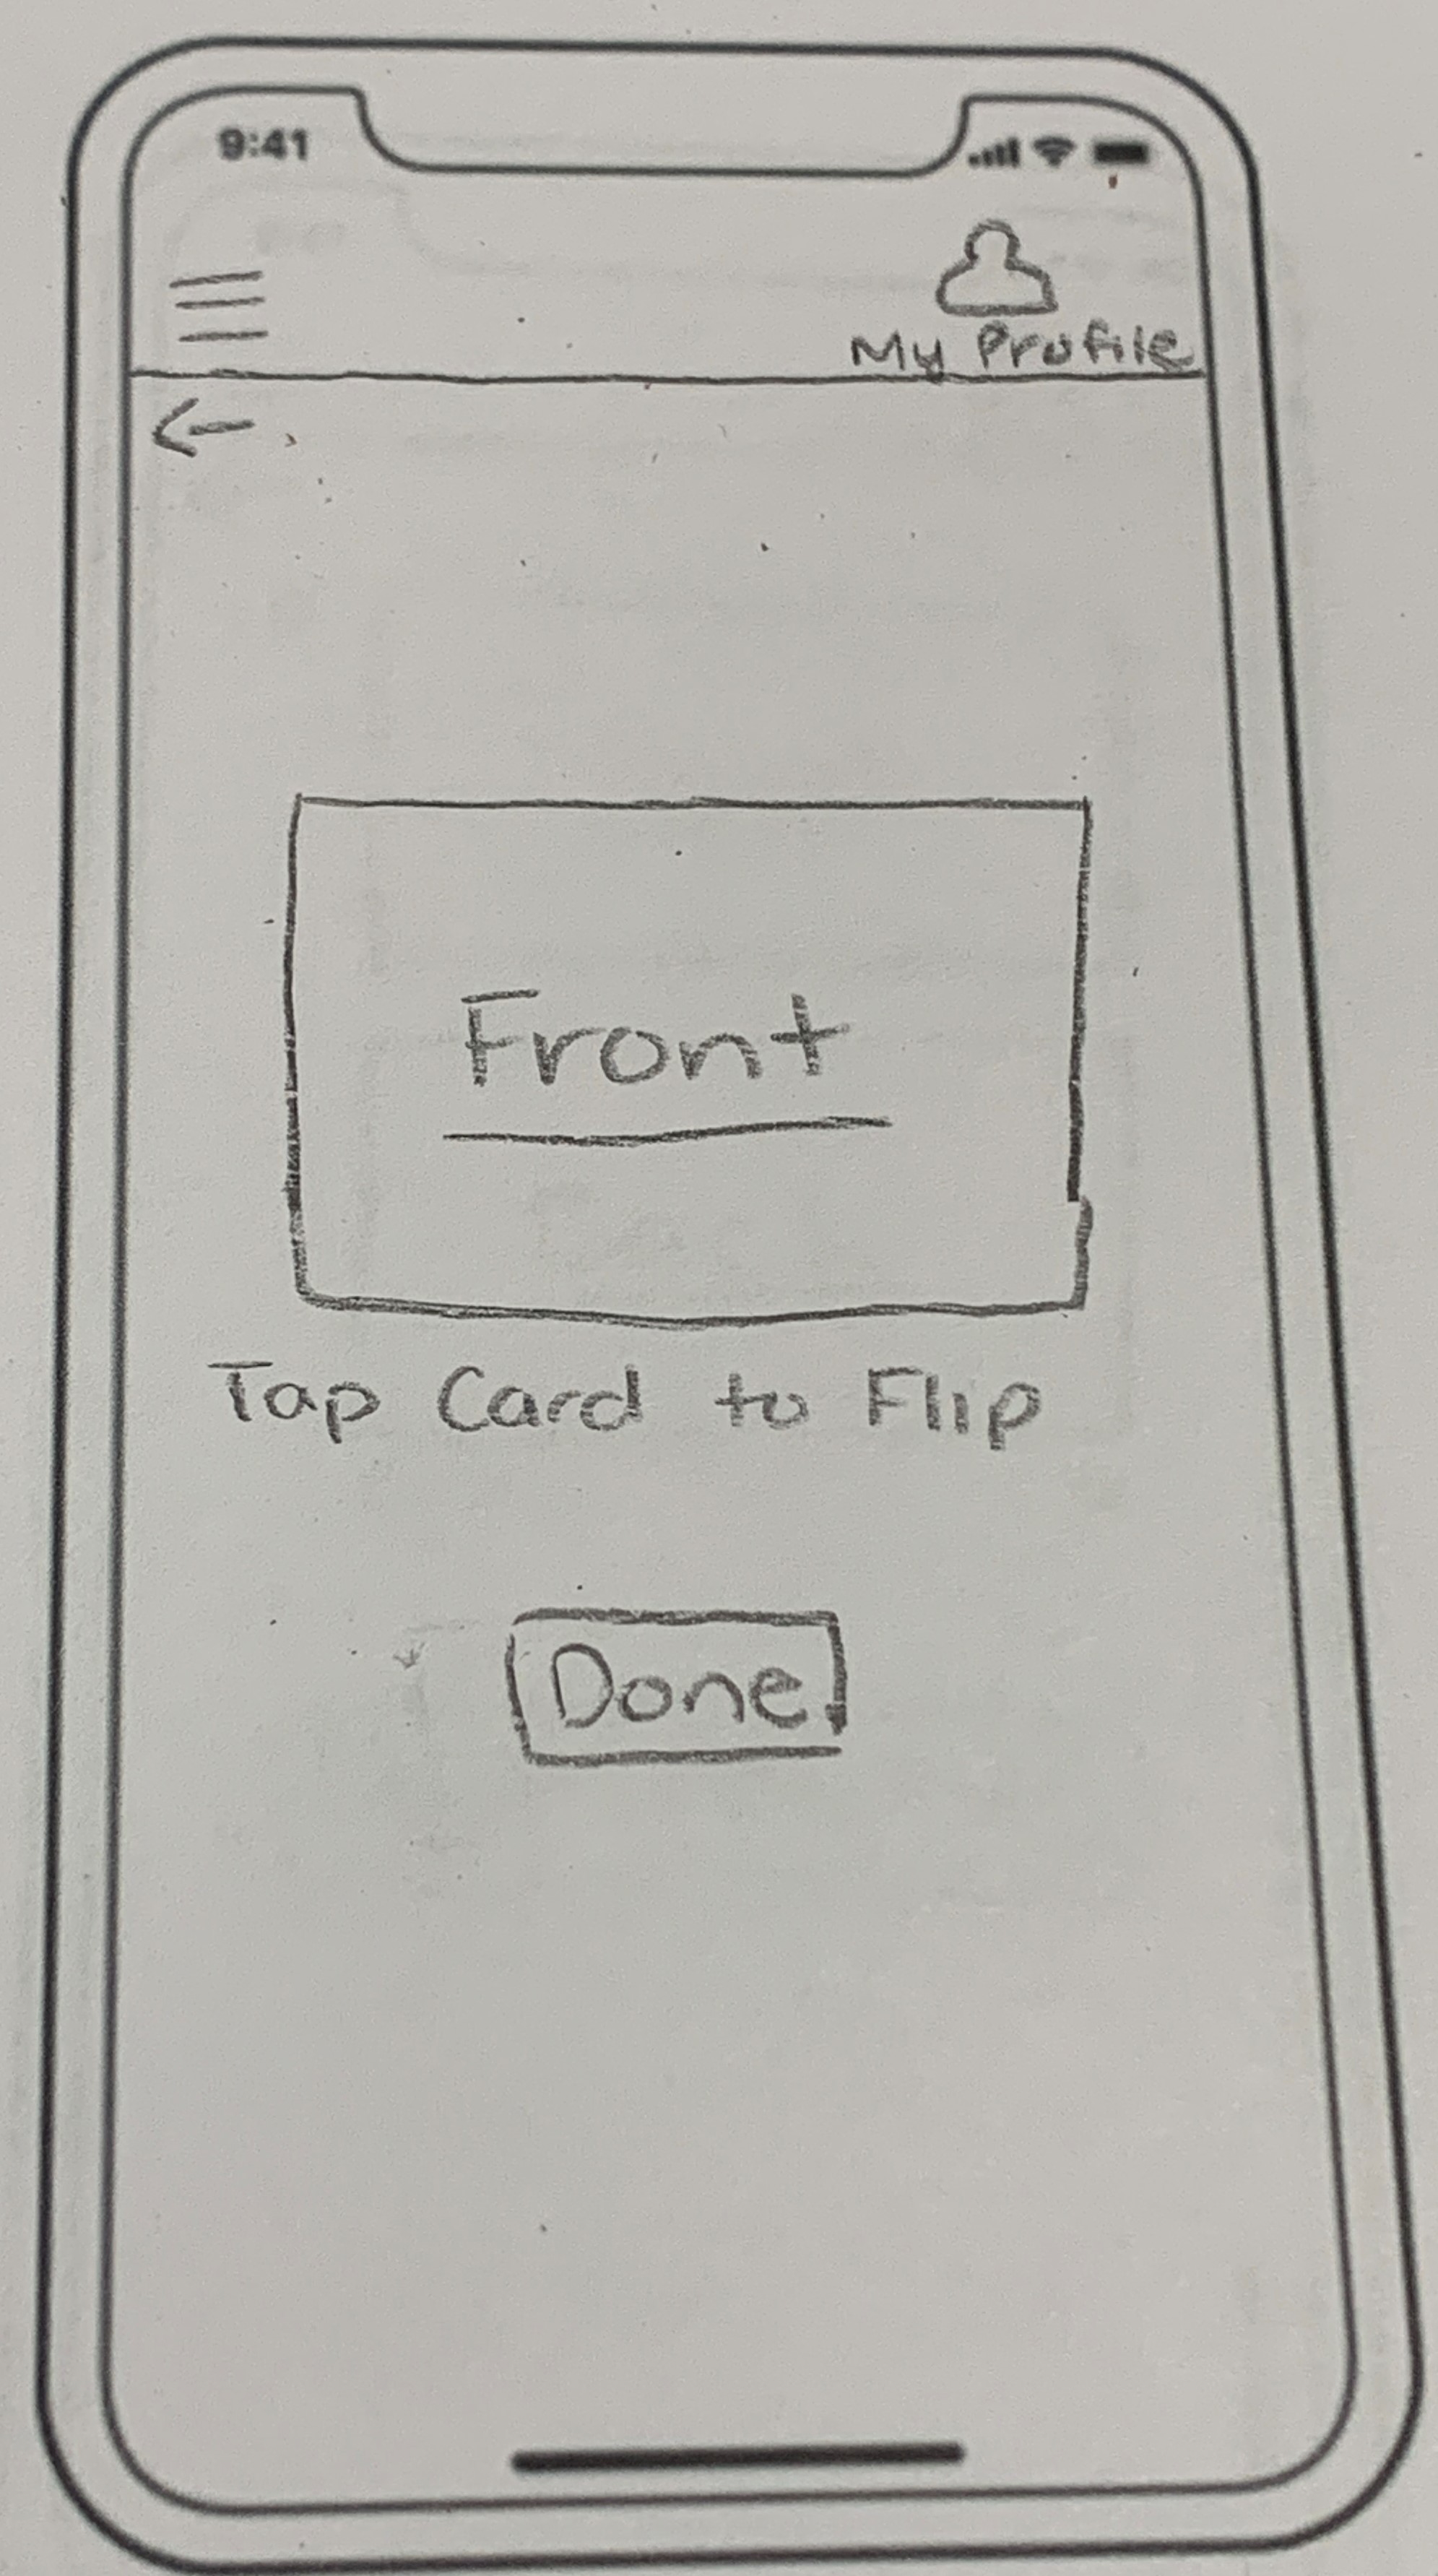 9:41
My Profile
Front
Tap Card to Flip
Done